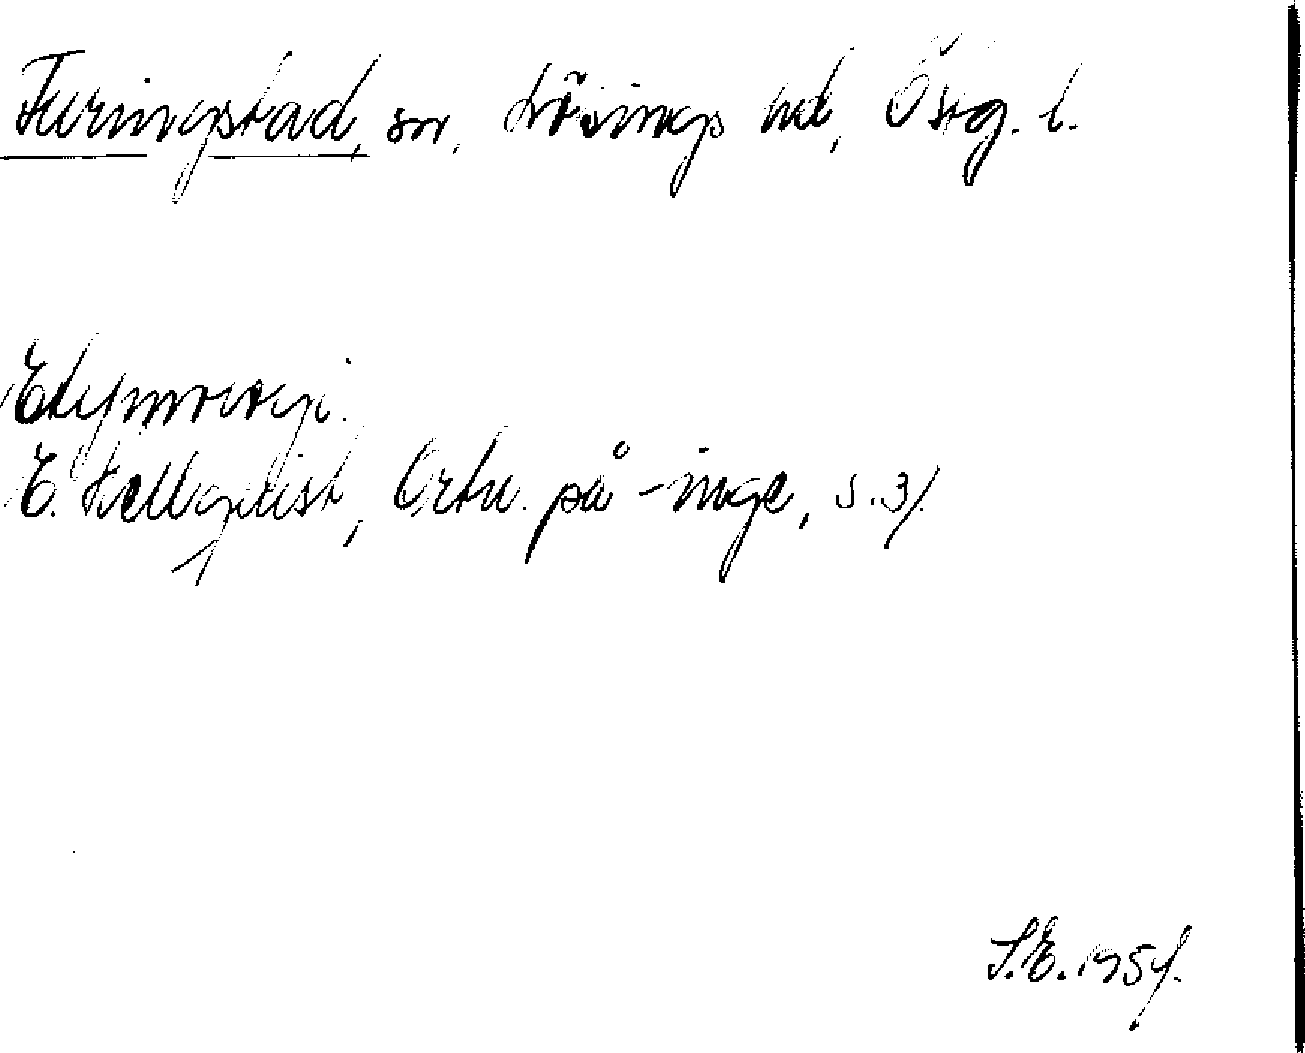 Furingstad, sn, Lösings hd, Östg. l.
Etymologi.
E. Hellquist, Ortn. på -inge, s. 31.
S.E. 1954.